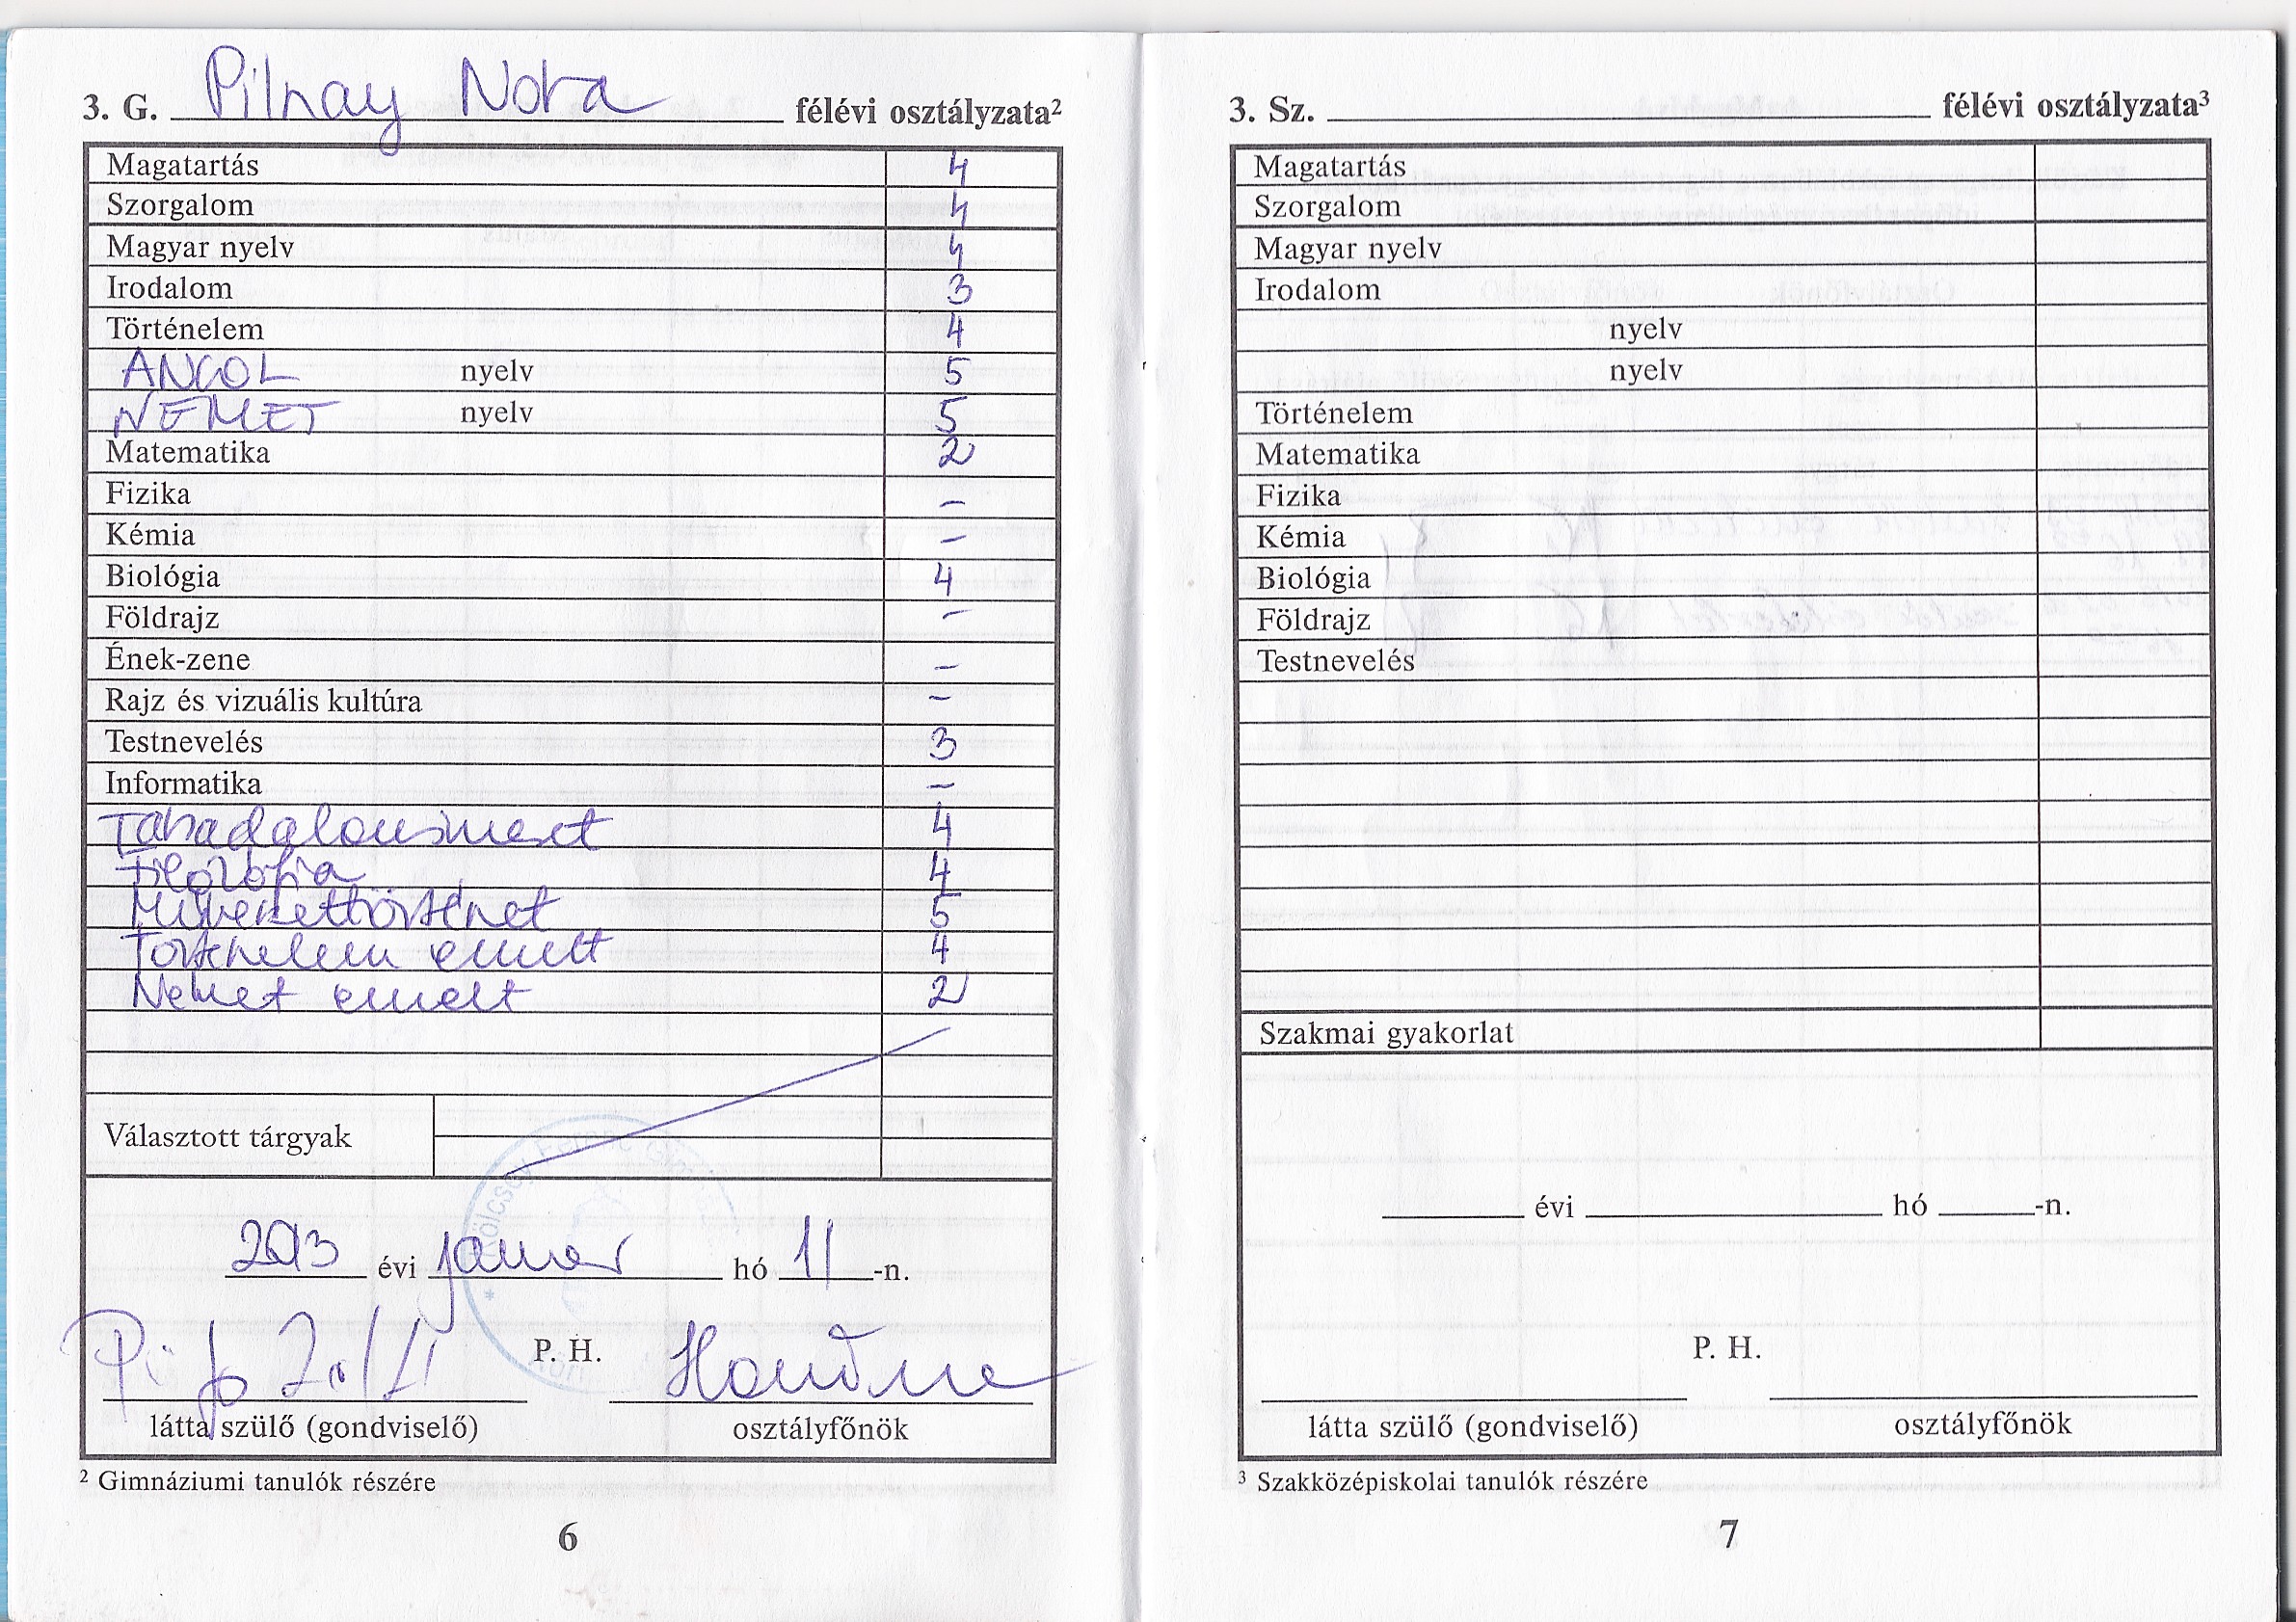 3. G. Pilnay Nora félévi osztályzata²
Magatartás 4
Szorgalom 4
Magyar nyelv 4
Irodalom 3
Történelem 4
ANGOL nyelv 5
NÉMET nyelv 5
Matematika 2
Fizika –
Kémia –
Biológia 4
Földrajz –
Ének-zene –
Rajz és vizuális kultúra –
Testnevelés 3
Informatika –
Társadalomismeret 4
Filozófia 4
Művészettörténet 5
Történelem emelt 4
Német emelt 2
Választott tárgyak
2013 évi január hó 11-n.
P. H.
látta szülő (gondviselő) osztályfőnök
² Gimnáziumi tanulók részére
6
3. Sz. félévi osztályzata³
Magatartás
Szorgalom
Magyar nyelv
Irodalom
nyelv
nyelv
Történelem
Matematika
Fizika
Kémia
Biológia
Földrajz
Testnevelés
Szakmai gyakorlat
évi hó -n.
P. H.
látta szülő (gondviselő) osztályfőnök
³ Szakközépiskolai tanulók részére
7